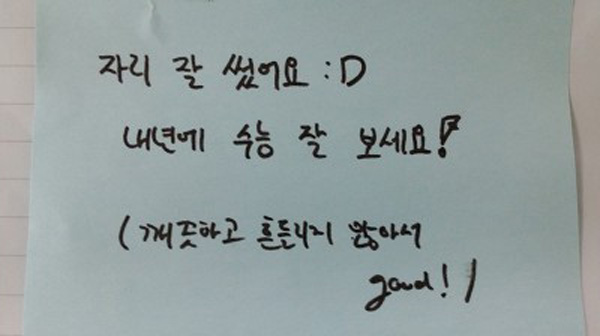 자리 잘 썼어요 :D
내년에 수능 잘 보세요!
(깨끗하고 흔들리지 않아서
good!)